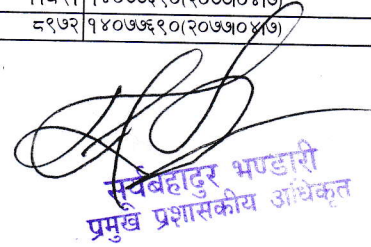 ८९७२ १४०७७६९०(२०७७।०४।७)
सूर्यबहादुर भण्डारी
प्रमुख प्रशासकीय अधिकृत